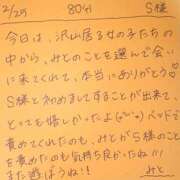 2/25 80分 S様
今日は、沢山居る女の子たちの
中から、みとのことを選んで会い
に来てくれて、本当にありがとう♡
S様と初めましてすることが出来て、
とっても嬉しかったよ(o^^o)ベッドで
責めてくれたのも、みとがS様のこと
を責めたのも気持ち良かったね!!!
また遊ぼうね!! みと